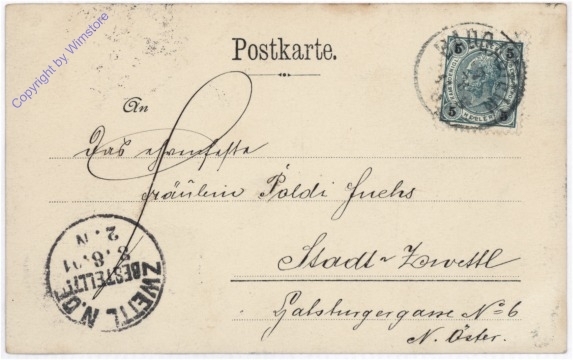 Copyright by Wimstore
Postkarte.
5 5
An
Das ehrenfeste
Fräulein Poldi Fuchs
Stadt-Zwettl
Galsburgergasse No 6
N. Öster.
ZWETTL N.Ö.
BESTELLT